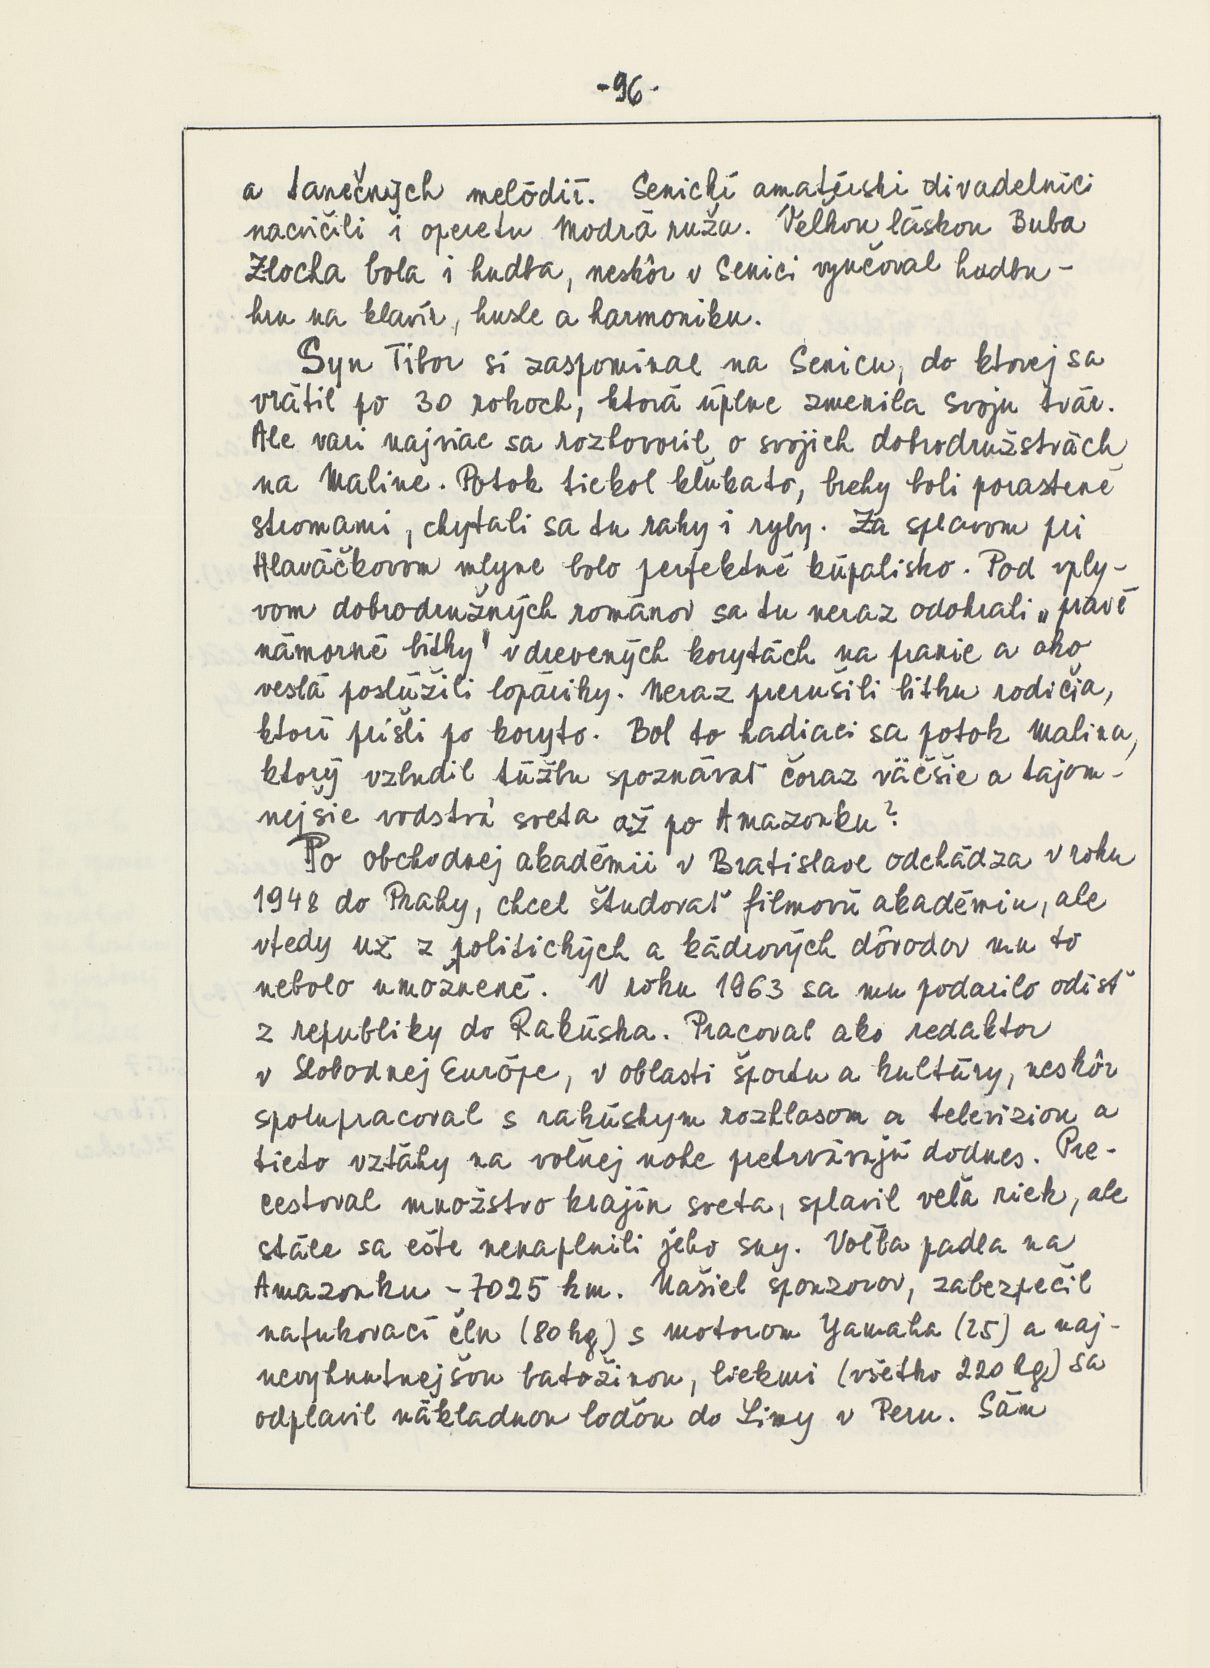 -96-
a tanečných melódií. Senickí amatérski divadelníci
nacvičili i operetu Modrá ruža. Veľkou láskou Buba
Zlocha bola i hudba, neskôr v Senici vyučoval hudbu -
hru na klavír, husle a harmoniku.
Syn Tibor si zaspomínal na Senicu, do ktorej sa
vrátil po 30 rokoch, ktorá úplne zmenila svoju tvár.
Ale vari najviac sa rozhovoril o svojich dobrodružstvách
na Maline. Potok tiekol kľukato, brehy boli porastené
stromami, chytali sa tu raky i ryby. Za splavom pri
Hlaváčkovom mlyne bolo perfektné kúpalisko. Pod vply-
vom dobrodružných románov sa tu neraz odohrali „pravé
námorné bitky" v drevených korytách na pranie a ako
veslá poslúžili lopáriky. Neraz prerušili bitku rodičia,
ktorí prišli po koryto. Bol to hadiaci sa potok Malina,
ktorý vzbudil túžbu spoznávať čoraz väčšie a tajom-
nejšie vodstvá sveta až po Amazonku?
Po obchodnej akadémii v Bratislave odchádza v roku
1948 do Prahy, chcel študovať filmovú akadémiu, ale
vtedy už z politických a kádrových dôvodov mu to
nebolo umožnené. V roku 1963 sa mu podarilo odísť
z republiky do Rakúska. Pracoval ako redaktor
v Slobodnej Európe, v oblasti športu a kultúry, neskôr
spolupracoval s rakúskym rozhlasom a televíziou a
tieto vzťahy na voľnej nohe pretrvávajú dodnes. Pre-
cestoval množstvo krajín sveta, splavil veľa riek, ale
stále sa ešte nenaplnili jeho sny. Voľba padla na
Amazonku - 7025 km. Našiel sponzorov, zabezpečil
nafukovací čln (80 kg) s motorom Yamaha (25) a naj-
nevyhnutnejšou batožinou, liekmi (všetko 220 kg) sa
odplavil nákladnou loďou do Limy v Peru. Sám